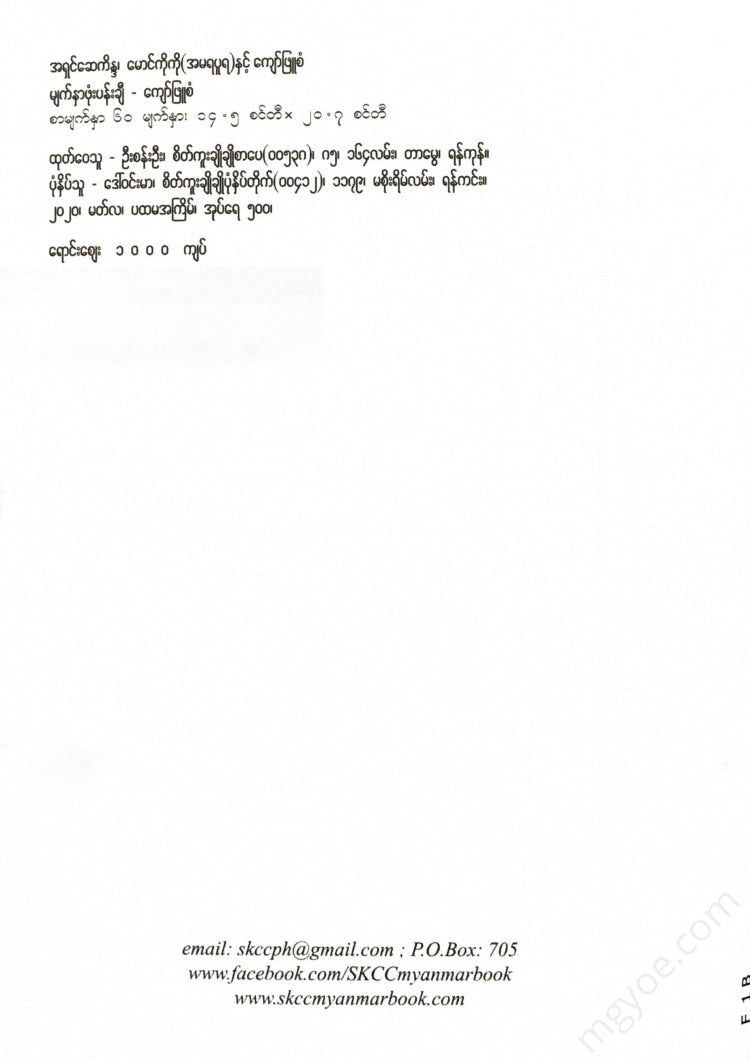 အရှင်ဆေကိန္ဒ၊ မောင်ကိုကို(အမရပူရ)နှင့် ကျော်ဖြူစံ
မျက်နှာဖုံးပန်းချီ - ကျော်ဖြူစံ
စာမျက်နှာ ၆၀ မျက်နှာ၊ ၁၄.၅ စင်တီ× ၂၀.၇ စင်တီ
ထုတ်ဝေသူ - ဦးစန်းဦး၊ စိတ်ကူးချိုချိုစာပေ(၀၀၅၃၈)၊ ဂ၅၊ ၁၆၄လမ်း၊ တာမွေ၊ ရန်ကုန်။
ပုံနှိပ်သူ - ဒေါ်ဝင်းမာ၊ စိတ်ကူးချိုချိုပုံနှိပ်တိုက်(၀၀၄၁၂)၊ ၁၁၇၉၊ မစိုးရိမ်လမ်း၊ ရန်ကင်း။
၂၀၂၀၊ မတ်လ၊ ပထမအကြိမ်၊ အုပ်ရေ ၅၀၀၊
ရောင်းစျေး ၁ ၀ ၀ ၀ ကျပ်
email: skccph@gmail.com ; P.O.Box: 705
www.facebook.com/SKCCmyanmarbook
www.skccmyanmarbook.com
mgyoe.com